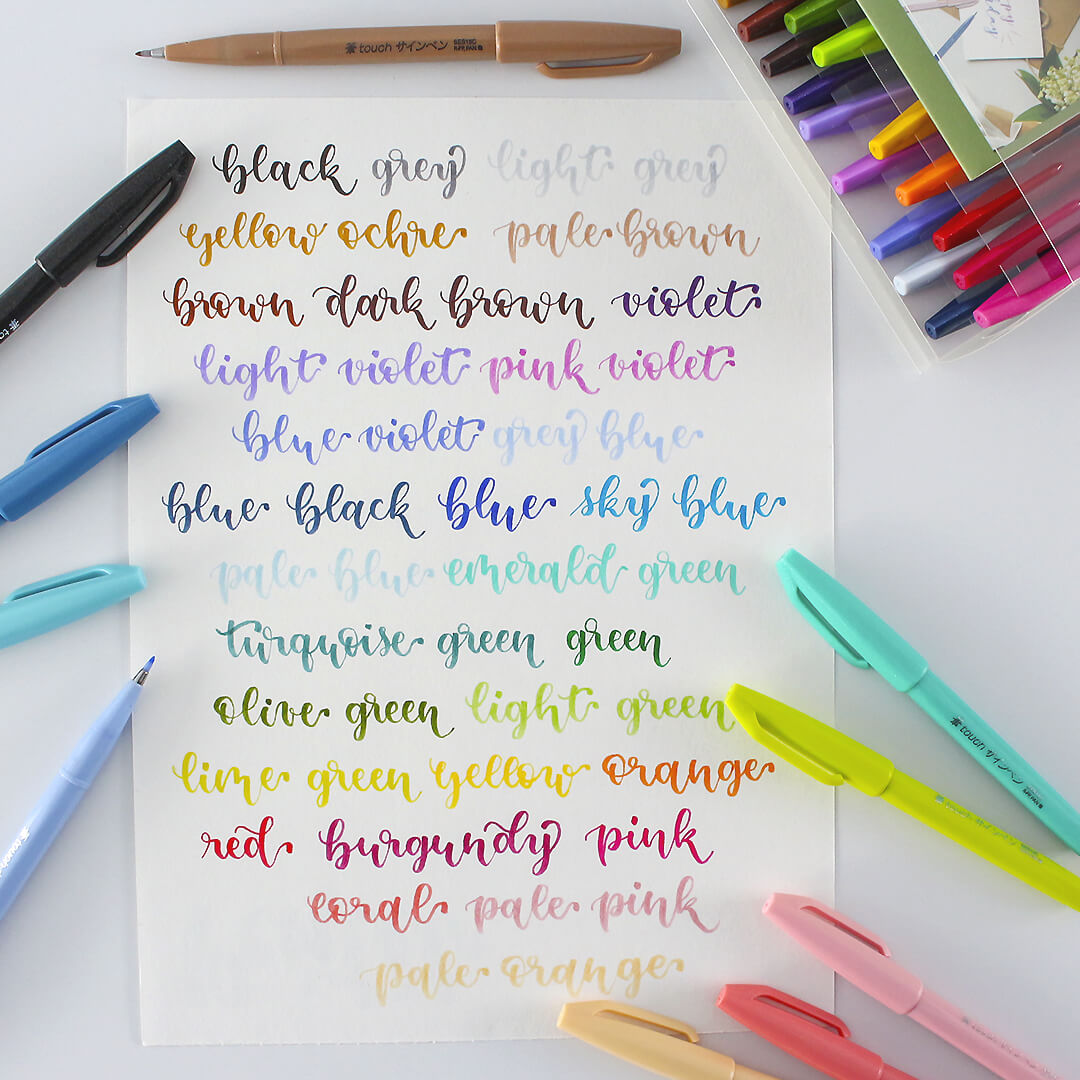 touch サインペン SES15C
black grey light grey
yellow ochre pale brown
brown dark brown violet
light violet pink violet
blue violet grey blue
blue black blue sky blue
pale blue emerald green
turquoise green green
olive green light green
lime green yellow orange
red burgundy pink
coral pale pink
pale orange
touch サインペン
touch サインペン